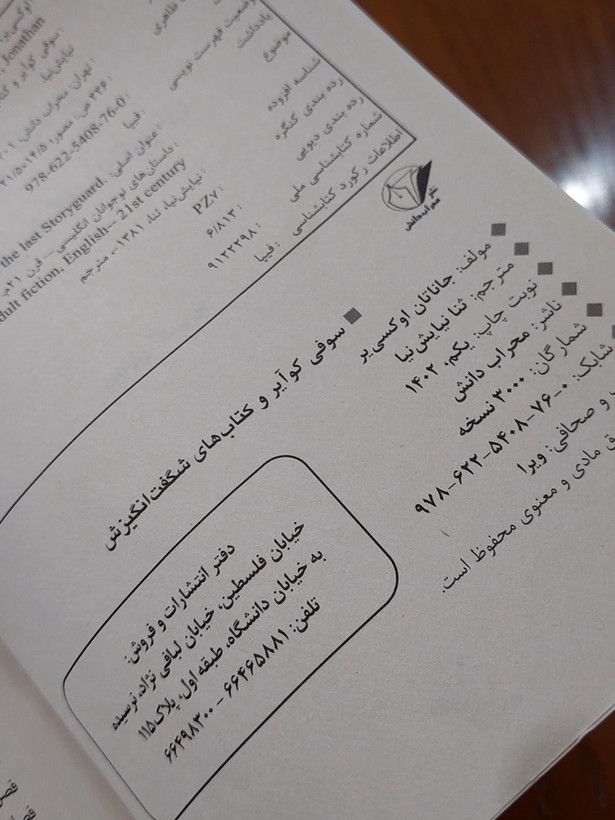 Jonathan
سوفی کوآیر و کتا
نیایش‌نیا
تهران: محراب دانش، ۱
978-622-5408-76-0:
فیپا
عنوان اصلی:
the last Storyguard.
داستان‌های نوجوانان انگلیسی -- قرن ۲۱م.
fiction, English-- 21st century
نیایش‌نیا، ثنا، ۱۳۸۱-، مترجم
PZ۷
۶/۸۱۳
۹۱۲۲۲۹۸
فیپا
وضعیت فهرست نویسی
یادداشت
موضوع
شناسه افزوده
رده بندی کنگره
رده بندی دیویی
شماره کتابشناسی ملی
اطلاعات رکورد کتابشناسی
نشر
محراب دانش
سوفی کوآیر و کتاب‌های شگفت‌انگیزش
مولف: جاناتان اوکسی‌یر
مترجم: ثنا نیایش‌نیا
نوبت چاپ: یکم، ۱۴۰۲
ناشر: محراب دانش
شمارگان: ۳۰۰۰ نسخه
شابک: ۰-۷۶-۵۴۰۸-۶۲۲-۹۷۸
و صحافی: ویرا
مادی و معنوی محفوظ است.
دفتر انتشارات و فروش:
خیابان فلسطین، خیابان لبافی نژاد، نرسیده
به خیابان دانشگاه، طبقه اول، پلاک۱۱۵
تلفن: ۶۶۴۶۵۸۸۱ - ۶۶۴۹۸۳۰۰